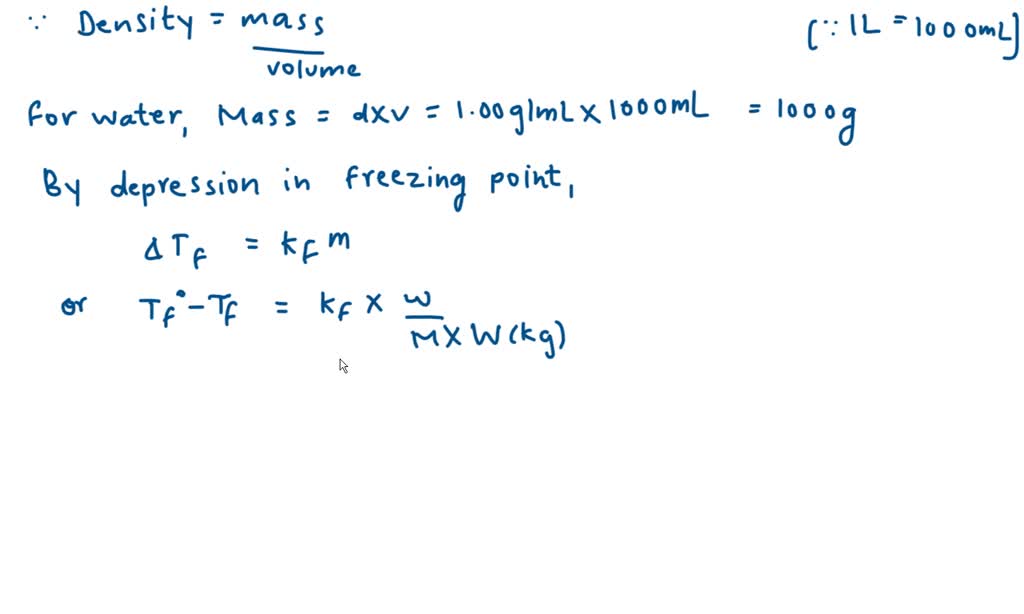 ∵ Density = mass / volume [∵ 1L = 1000mL]
For water, Mass = d×v = 1.00g/mL × 1000mL = 1000g
By depression in freezing point,
ΔT_f = k_f m
or T_f° - T_f = k_f × w / M × W(kg)